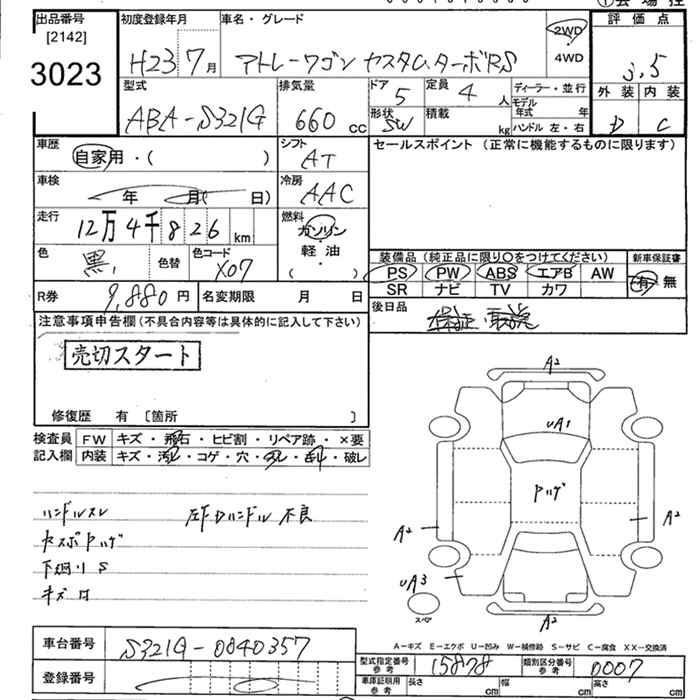 出品番号 初度登録年月 車名・グレード 評価点
[2142]
3023 H23 7月 アトレーワゴン カスタム.ターボRS 2WD 4WD 3.5
型式 排気量 ドア 5 定員 4人 ディーラー・並行 外装 内装
ABA-S321G 660cc 形状 SW 積載 kg モデル年式 年 ハンドル 左・右 D C
車歴 自家用・( ) シフト AT セールスポイント (正常に機能するものに限ります)
車検 年 月( 日) 冷房 AAC
走行 12万4千826km 燃料 ガソリン・軽油・( )
色 黒 色替 色コード X07
装備品 (純正品に限り○をつけてください) 新車保証書
PS PW ABS エアB AW 有・無
SR ナビ TV カワ
R券 9,880円 名変期限 月 日 後日品
注意事項申告欄 (不具合内容等は具体的に記入して下さい) 保証・取説
売切スタート
修復歴 有 〔箇所 〕
検査員 FW キズ・飛石・ヒビ割・リペア跡・×要
記入欄 内装 キズ・汚レ・コゲ・穴・スレ・破レ
ハンドルスレ 左F Dハンドル不良
下廻り S
A2
UA1
Pハゲ
A2 A2
UA3
スペア A2
A-キズ E-エクボ U-凹み W-補修跡 S-サビ C-腐食 XX-交換済
車台番号 S321G-0840357 型式指定番号 参考 15878 類別区分番号 参考 0007
登録番号 車庫証明用 参考 長さ cm 幅 cm 高さ cm